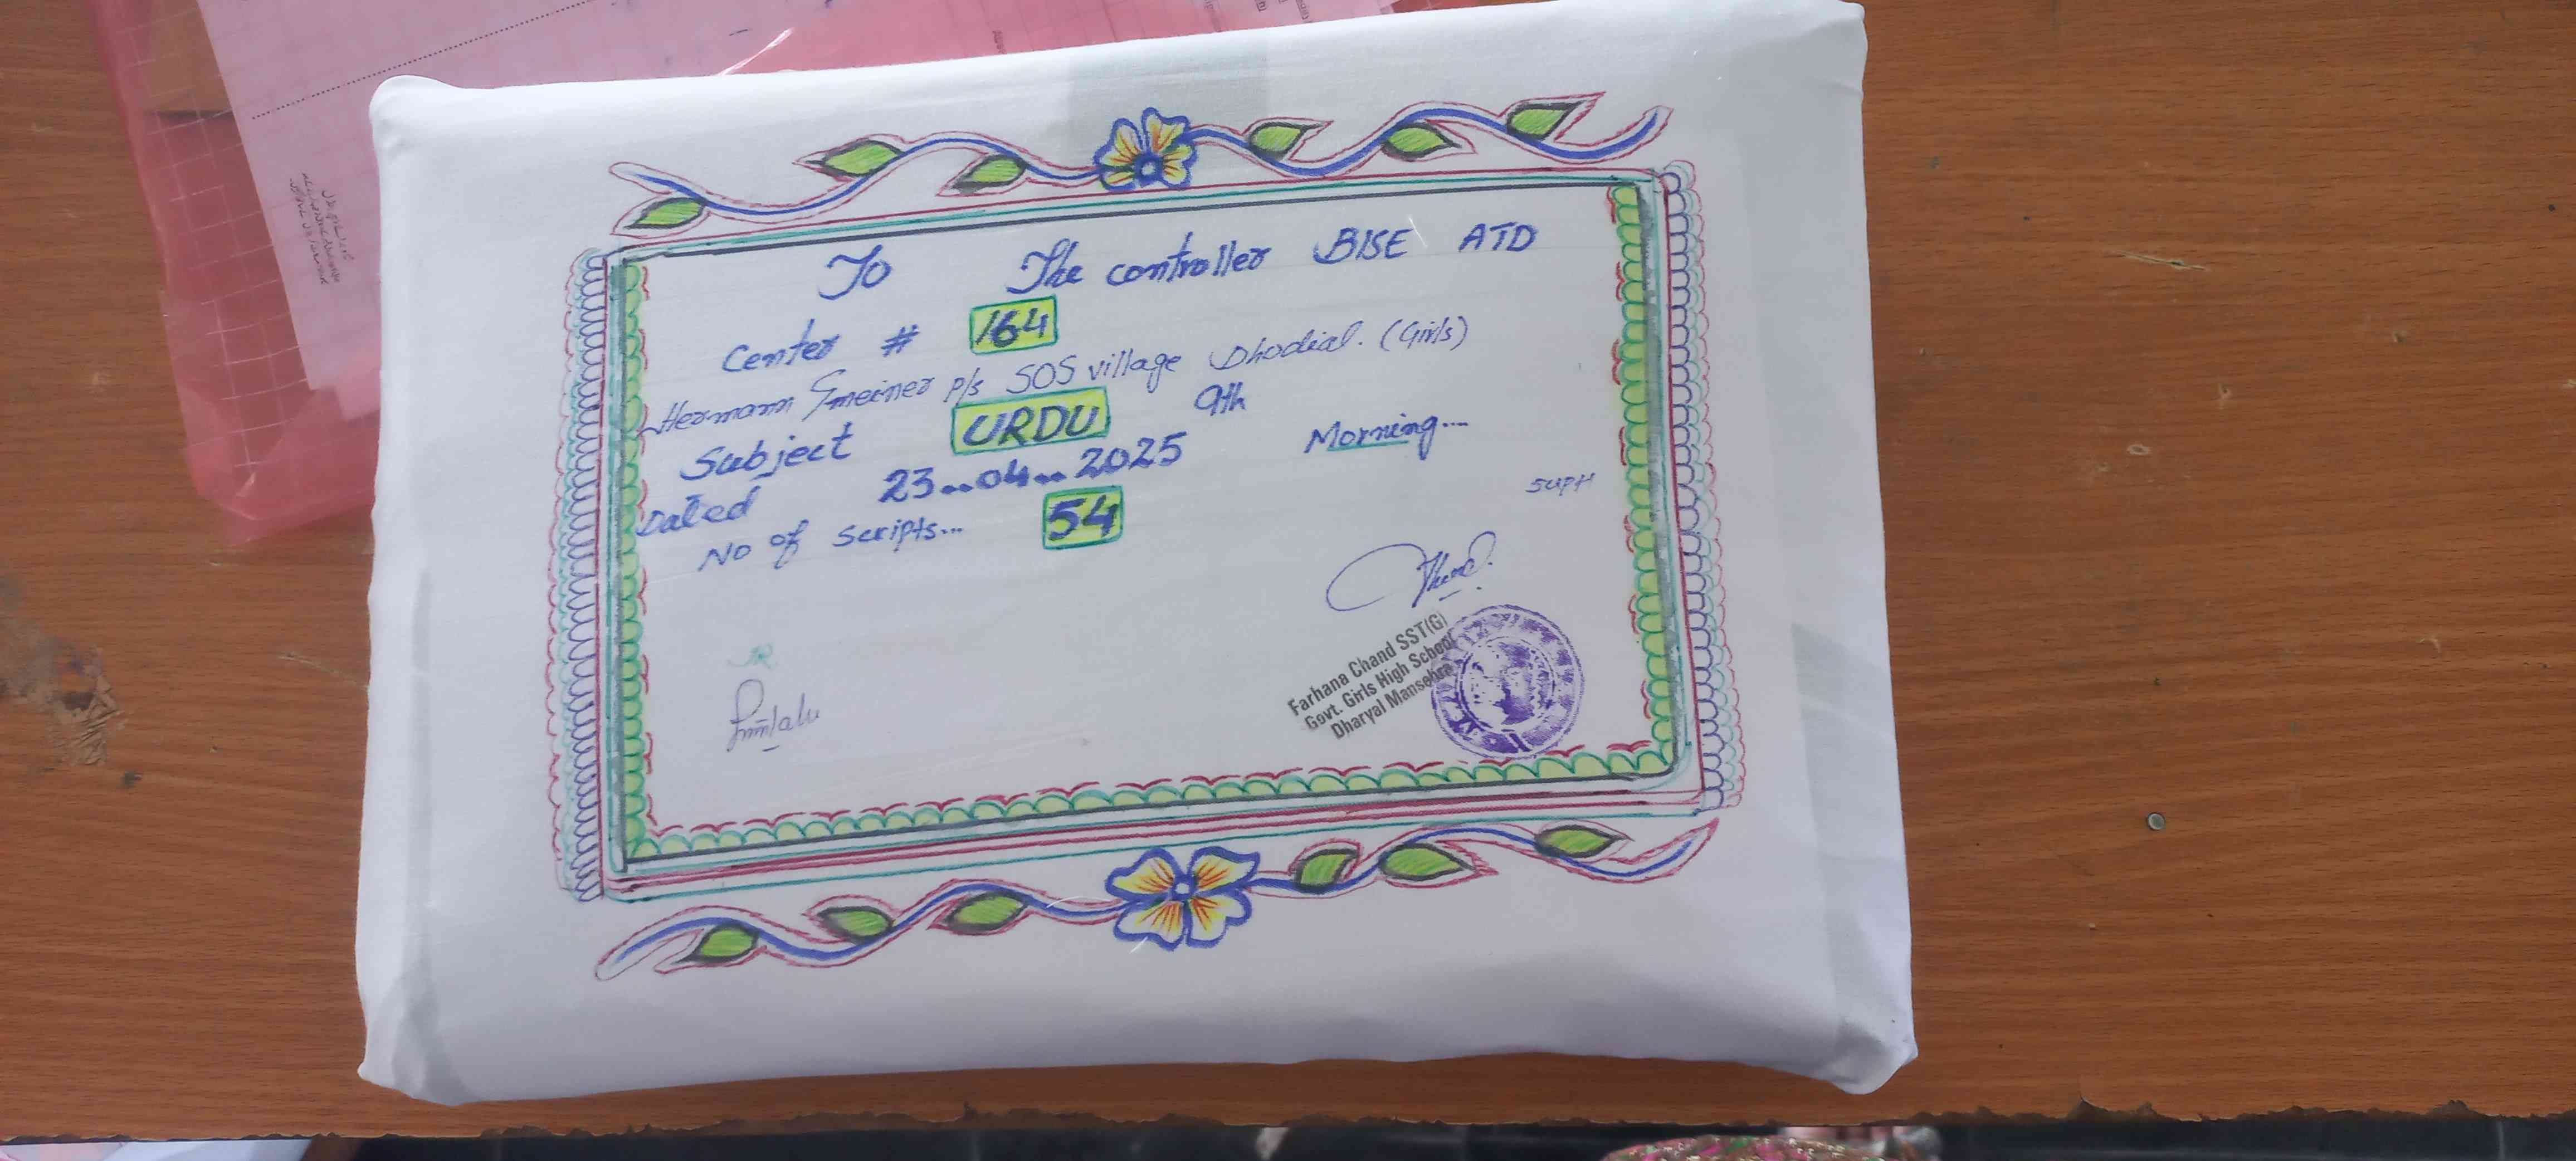 To The controller BISE ATD
Center # 164
Hermann Gmeiner p/s SOS village Dhodial. (Girls)
Subject URDU 9th
Dated 23..04..2025 Morning...
No of scripts... 54
SUPH
Farhana Chand SST(G)
Govt. Girls High School
Dharyal Mansehra